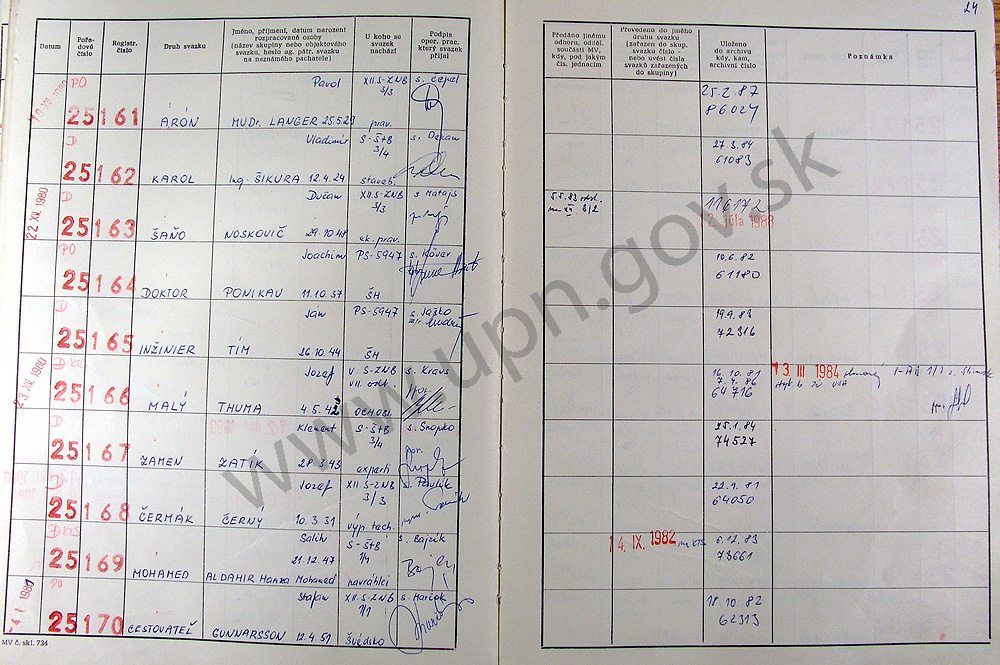 24
Datum
Pořa-
dové
číslo
Registr.
číslo
Druh svazku
Jméno, příjmení, datum narození
rozpracované osoby
(název skupiny nebo objektového
svazku, heslo ag. pátr. svazku
na neznámého pachatele)
U koho se
svazek
nachází
Podpis
oper. prac.
který svazek
přijal
Předáno jinému
odboru, odděl.
součásti MV,
kdy, pod jakým
čís. jednacím
Převedeno do jiného
druhu svazku
(zařazen do skup.
svazku číslo -
nebo uvést čísla
svazků zařazených
do skupiny)
Uloženo
do archivu
kdy, kam,
archivní číslo
Poznámka
PO
Pavol XII.S-ZNB s. Čepel
3/3
25161 ARÓN MUDr. LANGER 25.5.29 prav.
25.2.87
86024
D
Vladimír S-ŠtB s. Dekan
3/4
25162 KAROL Ing. ŠIKURA 12.4.24 staveb.
27.3.84
61083
22 XII. 1980
D
Dušan XII.S-ZNB s. Matajs
3/3
25163 ŠAŇO NOSKOVIČ 29.10.48 ek. prav.
5.5.83
3/2
116172
12. júla 1988
PO
Joachim PS-5947 s. Köver
25164 DOKTOR PONIKAU 11.10.57 ŠH
10.6.82
61180
D
Ján PS-5947 s. Jaško
25165 INŽINIER TÍM 26.10.44 ŠH
19.9.83
72316
23. XII. 1980
D KTS
Jozef V. S-ZNB s. Kravs
VII. odd.
25166 MALÝ THUMA 4.5.42 OCHOBI.
16.10.81
7.4.86
64716
13. III 1984
D
Klement S-ŠtB s. Snopko
3/4
25167 ZAMEN ZATÍK 28.3.43 experti
25.1.84
74527
D
Jozef XII.S-ZNB s. Pavlik
3/3
25168 ČERMÁK ČERNY 10.3.31 výp. tach.
22.1.81
64050
D KTS
Salih S-ŠtB s. Bajzik
21.12.47 1/4
25169 MOHAMED ALDAMIR Hamza Mohamed navráhlci
14. IX. 1982
6.12.83
73661
PO
Stefan XII.S-ZNB s. Marčok
7/1
25170 CESTOVATEĽ GUNNARSSON 12.4.51 Švédsko
18.10.82
62313
MV č. skl. 734
www.upn.gov.sk